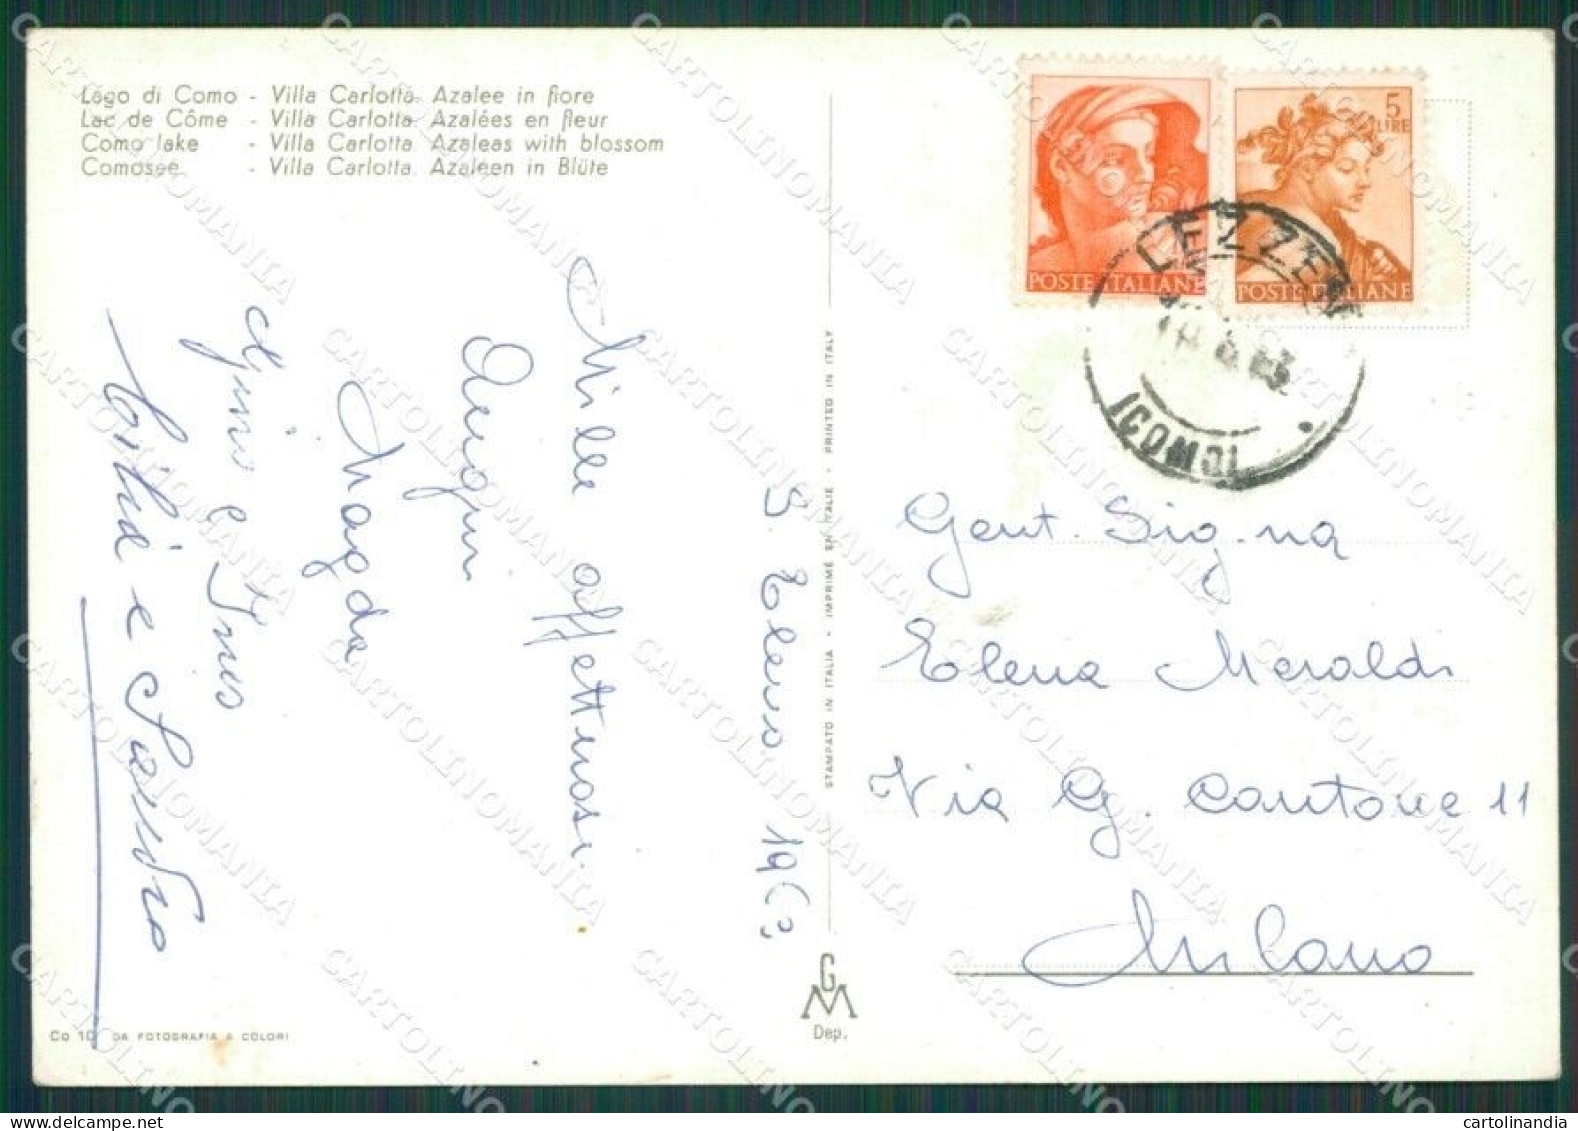 Lago di Como - Villa Carlotta. Azalee in fiore
Lac de Côme - Villa Carlotta. Azalées en fleur
Como lake - Villa Carlotta. Azaleas with blossom
Comosee - Villa Carlotta. Azaleen in Blüte
Mille affettuosi
Auguri
Magda
e Ines
e Sandro
S. Eleno 1963
STAMPATO IN ITALIA - IMPRIMÉ EN ITALIE - PRINTED IN ITALY
GM
Dep.
Co 10 DA FOTOGRAFIA A COLORI
POSTE ITALIANE
5
LIRE
POSTE ITALIANE
LEZZENO
(COMO)
Gent. Sig.na
Elena Meraldi
Via G. Cantone 11
Milano
CARTOLINOMANIA
cartolinandia